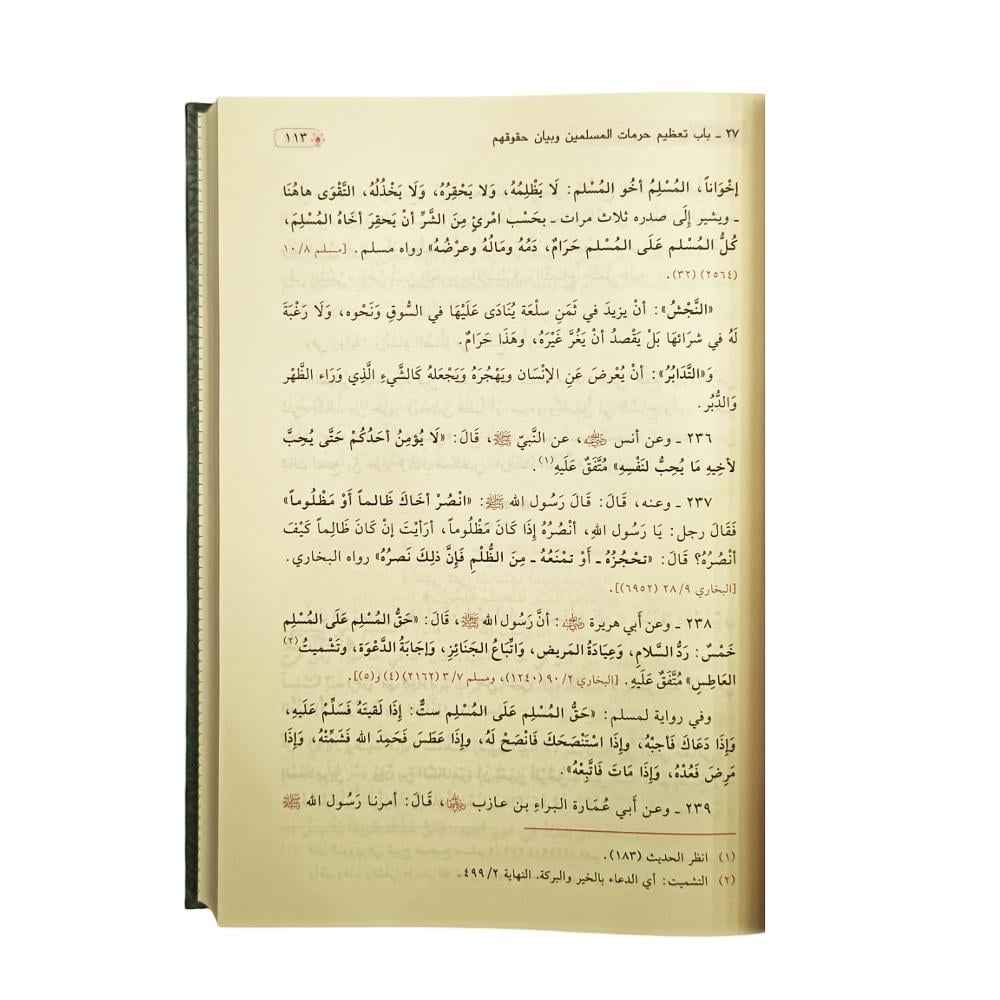 ٢٧ ـ باب تعظيم حرمات المسلمين وبيان حقوقهم
١١٣
إخْوَاناً، المُسْلِمُ أخُو المُسْلم: لَا يَظْلِمُهُ، وَلا يَحْقِرُهُ، وَلَا يَخْذُلُهُ، التَّقْوَى هاهُنَا
ـ ويشير إلَى صدره ثلاث مرات ـ بحَسْب امْرئٍ مِنَ الشَّرِّ أنْ يَحقِرَ أخَاهُ المُسْلِمَ،
كُلُّ المُسْلم عَلَى المُسْلم حَرَامٌ، دَمُهُ ومَالُهُ وعرْضُهُ» رواه مسلم. [مسلم ٨/ ١٠
(٢٥٦٤) (٣٢).
«النَّجْشُ»: أنْ يزيدَ في ثَمَنِ سلْعَة يُنَادَى عَلَيْهَا في السُّوقِ وَنَحْوه، وَلَا رَغْبَةَ
لَهُ في شرَائهَا بَلْ يَقْصدُ أنْ يَغُرَّ غَيْرَهُ، وهَذَا حَرَامٌ.
وَ«التَّدَابُرُ»: أنْ يُعْرضَ عَنِ الإنْسَان ويَهْجُرَهُ وَيَجْعَلهُ كَالشَّيءِ الَّذِي وَرَاء الظَّهْر
وَالدُّبُر.
٢٣٦ ـ وعن أنس رضي الله عنه، عن النَّبيّ ﷺ، قَالَ: «لَا يُؤمِنُ أحَدُكُمْ حَتَّى يُحِبَّ
لأخِيهِ مَا يُحِبُّ لنَفْسِهِ» مُتَّفَقٌ عَلَيهِ(١).
٢٣٧ ـ وعنه، قَالَ: قَالَ رَسُول الله ﷺ: «انْصُرْ أخَاكَ ظَالماً أَوْ مَظْلُوماً»
فَقَالَ رجل: يَا رَسُول اللهِ، أنْصُرُهُ إذَا كَانَ مَظْلُوماً، أرَأيْتَ إنْ كَانَ ظَالِماً كَيْفَ
أنْصُرُهُ؟ قَالَ: «تحْجُزُهُ ـ أَوْ تمْنَعُهُ ـ مِنَ الظُّلْمِ فَإنَّ ذلِكَ نَصرُهُ» رواه البخاري.
[البخاري ٩/ ٢٨ (٦٩٥٢)].
٢٣٨ ـ وعن أَبي هريرة رضي الله عنه: أنَّ رَسُول الله ﷺ، قَالَ: «حَقُّ المُسْلِم عَلَى المُسْلِم
خَمْسٌ: رَدُّ السَّلامِ، وَعِيَادَةُ المَريض، وَاتِّبَاعُ الجَنَائِز، وَإجَابَةُ الدَّعْوَة، وتَشْميتُ(٢)
العَاطِس» مُتَّفَقٌ عَلَيهِ. [البخاري ٢/ ٩٠ (١٢٤٠)، ومسلم ٧/ ٣ (٢١٦٢) (٤) و(٥)].
وفي رواية لمسلم: «حَقُّ المُسْلِم عَلَى المُسْلِم ستٌّ: إِذَا لَقيتَهُ فَسَلِّمْ عَلَيهِ،
وَإِذَا دَعَاكَ فَأجبْهُ، وإذَا اسْتَنْصَحَكَ فَانْصَحْ لَهُ، وإِذَا عَطَسَ فَحَمِدَ الله فَشَمِّتْهُ، وَإِذَا
مَرِضَ فَعُدْهُ، وَإِذَا مَاتَ فَاتَّبِعْهُ».
٢٣٩ ـ وعن أَبي عُمَارة البراءِ بن عازب رضي الله عنهما، قَالَ: أمرنا رَسُول الله ﷺ
(١) انظر الحديث (١٨٣).
(٢) التشميت: أي الدعاء بالخير والبركة. النهاية ٢/ ٤٩٩.